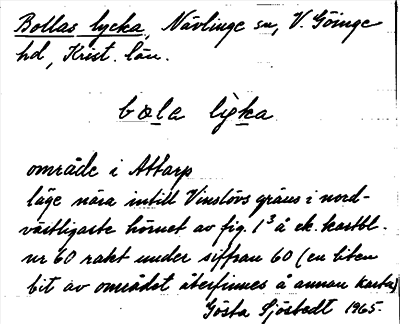 Bollas lycka, Nävlinge sn, V. Göinge
hd, Krist. län.
bola lyka
område i Attarp
läge nära intill Vinslövs gräns i nord-
västligaste hörnet av fig. 1³ å ek. kartbl.
nr 60 rakt under siffran 60 (en liten
bit av området återfinnes å annan karta)
Gösta Sjöstedt 1965.